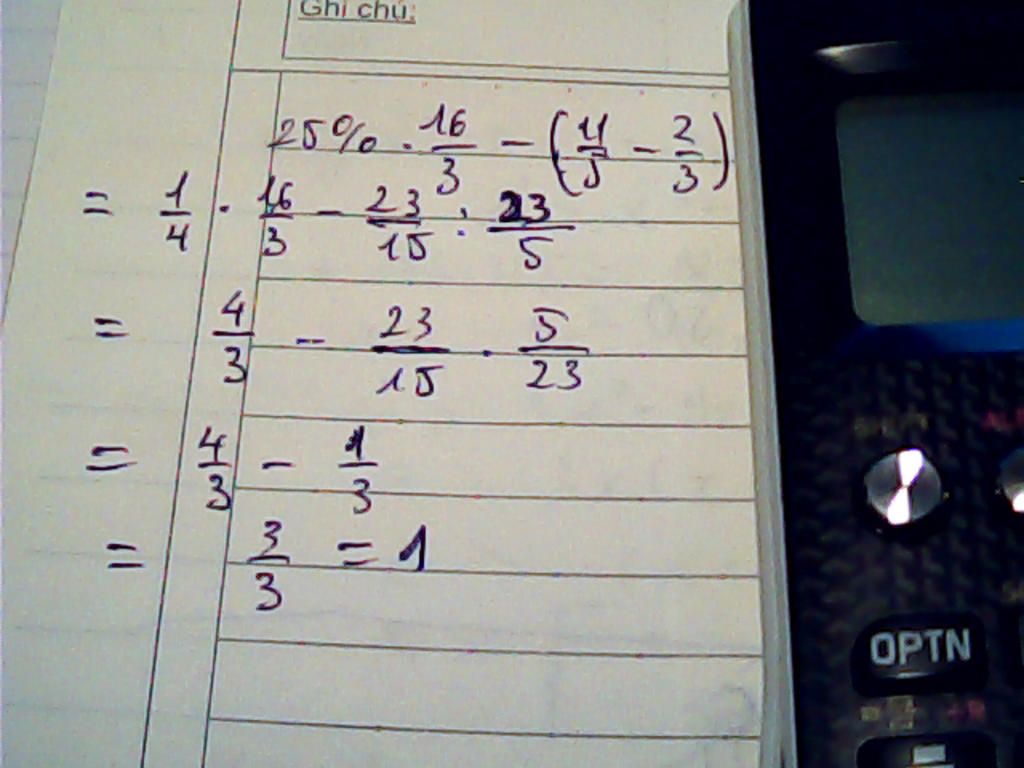 Ghi chú:
25% · 16/3 - (11/5 - 2/3)
= 1/4 · 16/3 - 23/15 : 23/5
= 4/3 - 23/15 · 5/23
= 4/3 - 1/3
= 3/3 = 1
OPTN